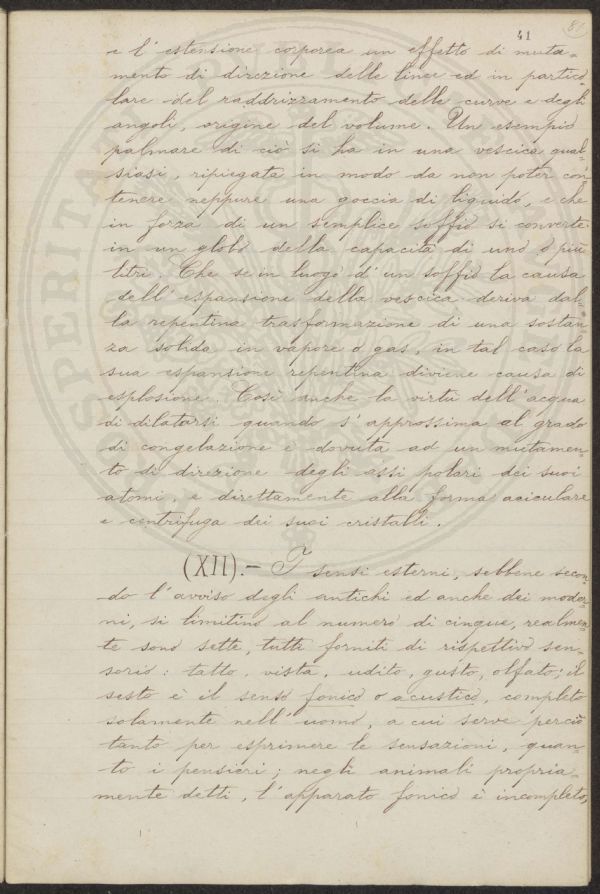 41
81
e l'estensione corporea un effetto di muta=
mento di direzione delle linee ed in partico
lare del raddrizzamento delle curve e degli
angoli, origine del volume. Un esempio
palmare di ciò si ha in una vescica qual=
siasi, ripiegata in modo da non poter con
tenere neppure una goccia di liquido, e che
in forza di un semplice soffio si converte
in un globo della capacità di uno o più
litri. Che se in luogo d'un soffio la causa
dell'espansione della vescica deriva dal=
la repentina trasformazione di una sostan
za solida in vapore o gas, in tal caso la
sua espansione repentina diviene causa di
esplosione. Così anche la virtù dell'acqua
di dilatarsi quando s'approssima al grado
di congelazione è dovuta ad un mutamen=
to di direzione degli assi polari dei suoi
atomi, e direttamente alla forma aciculare
e centrifuga dei suoi cristalli.
(XII).— I sensi esterni, sebbene secon=
do l'avviso degli antichi ed anche dei moder=
ni, si limitino al numero di cinque, realmen=
te sono sette, tutti forniti di rispettivo sen=
sorio: tatto, vista, udito, gusto, olfato; il
sesto è il senso fonico o acustico, completo
solamente nell'uomo, a cui serve perciò
tanto per esprimere le sensazioni, quan=
to i pensieri; negli animali propria=
mente detti, l'apparato fonico è incompleto,